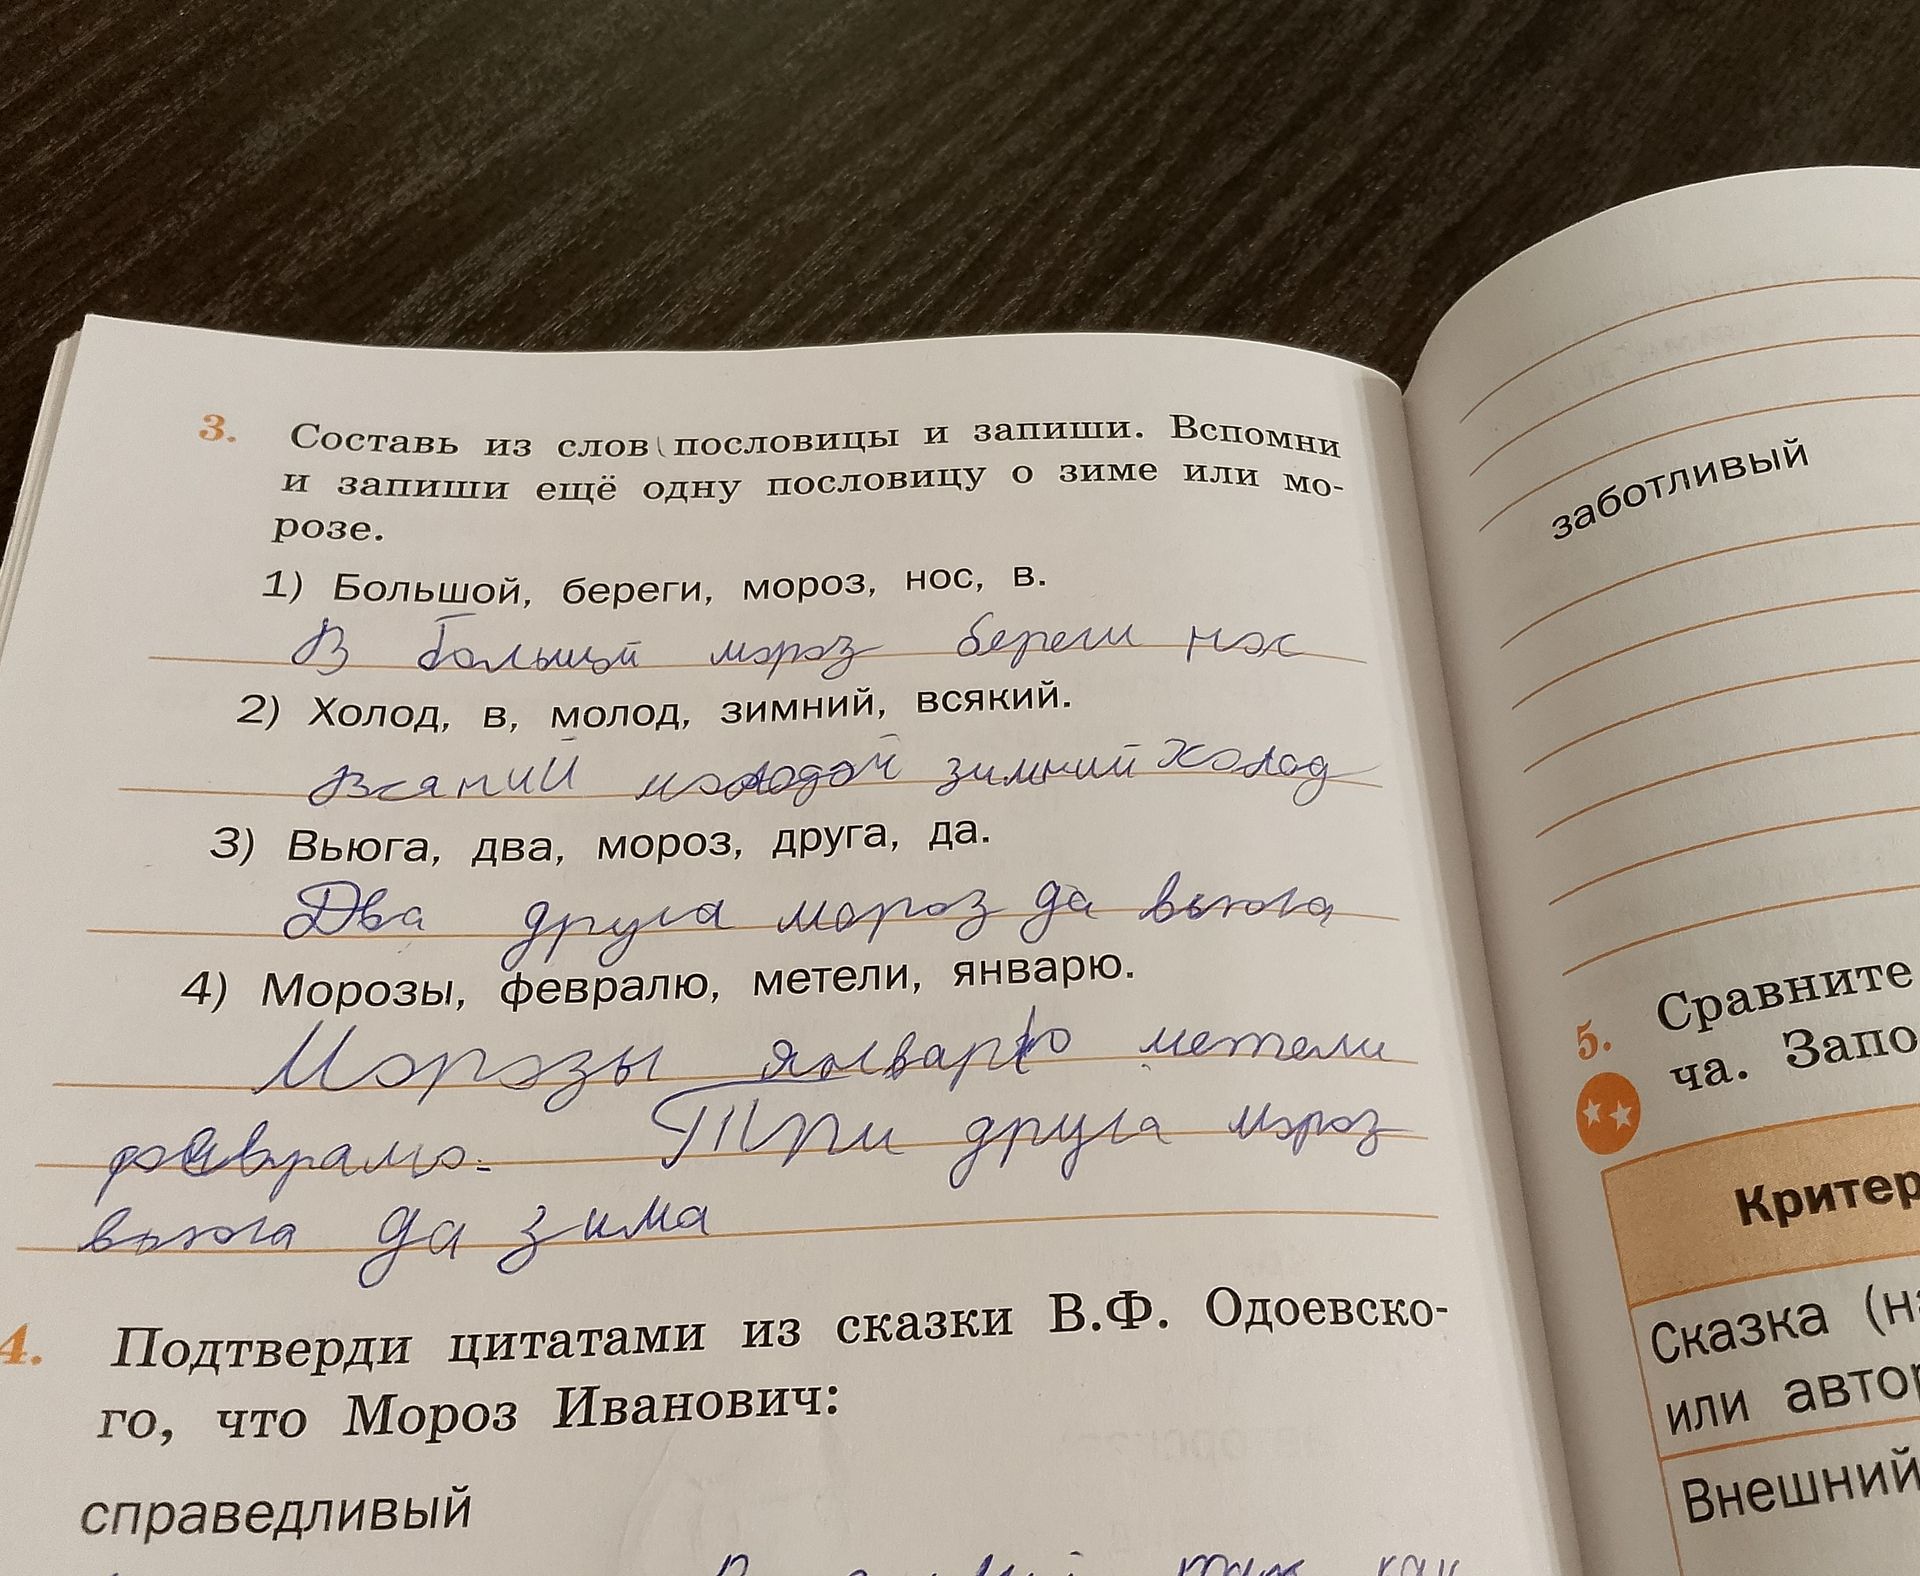 3. Составь из слов пословицы и запиши. Вспомни
и запиши ещё одну пословицу о зиме или мо-
розе.
1) Большой, береги, мороз, нос, в.
В большой мороз береги нос
2) Холод, в, молод, зимний, всякий.
Всякий молодой зимний холод
3) Вьюга, два, мороз, друга, да.
Два друга мороз да вьюга
4) Морозы, февралю, метели, январю.
Морозы январю метели
февралю. Три друга мороз
вьюга да зима
4. Подтверди цитатами из сказки В.Ф. Одоевско-
го, что Мороз Иванович:
справедливый
так как
заботливый
5. Сравните
ча. Запо
Критер
Сказка (на
или автор
Внешний